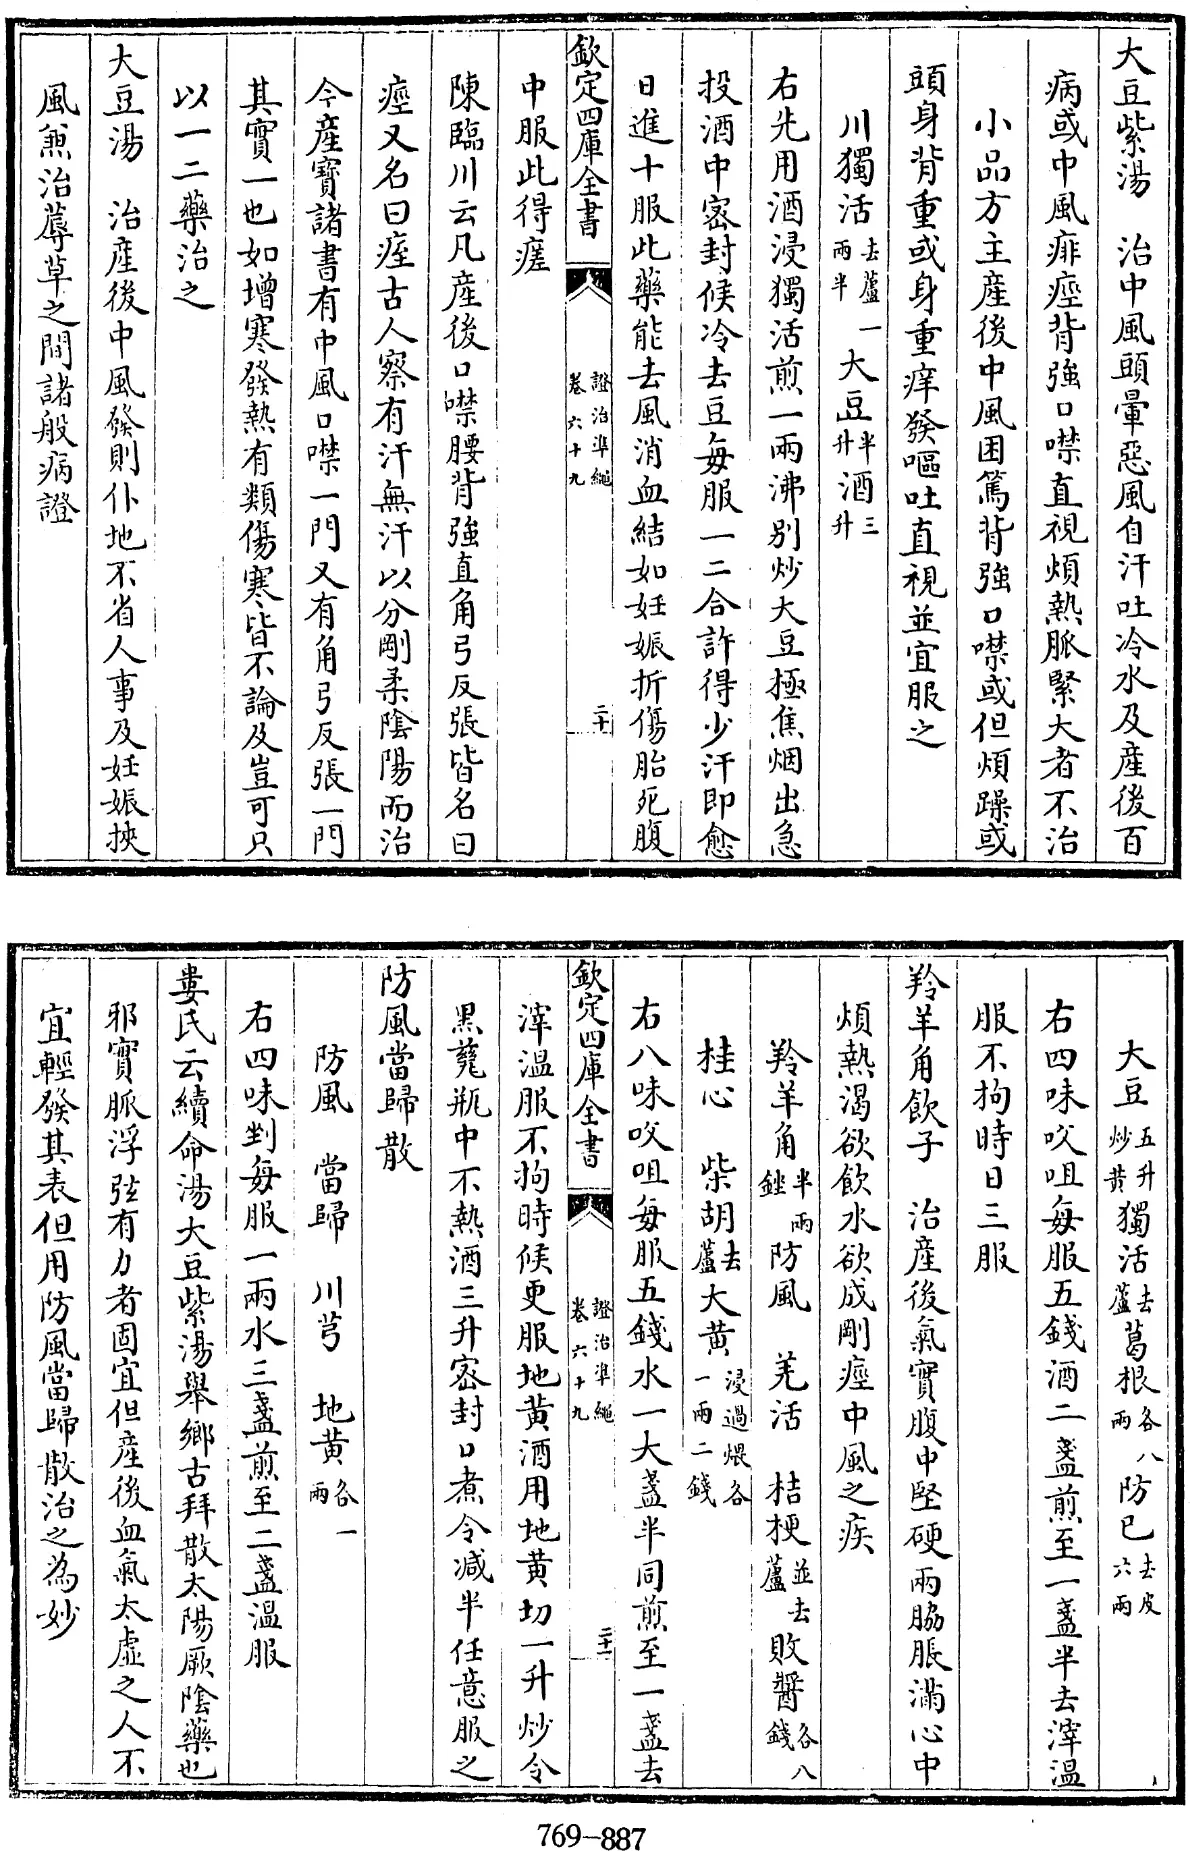 大豆紫湯　治中風頭暈惡風自汗吐冷水及產後百
病或中風痱痙背強口噤直視煩熱脈緊大者不治
小品方主產後中風困篤背強口噤或但煩躁或
頭身背重或身重痒發嘔吐直視並宜服之
川獨活去蘆一兩半大豆半升酒三升
右先用酒浸獨活煎一兩沸別炒大豆極焦烟出急
投酒中密封候冷去豆每服一二合許得少汗即愈
日進十服此藥能去風消血結如妊娠折傷胎死腹
欽定四庫全書
證治準繩
卷六十九
二十
中服此得瘥
陳臨川云凡產後口噤腰背強直角弓反張皆名曰
痙又名曰痓古人察有汗無汗以分剛柔陰陽而治
今產寶諸書有中風口噤一門又有角弓反張一門
其實一也如增寒發熱有類傷寒皆不論及豈可只
以一二藥治之
大豆湯　治產後中風發則仆地不省人事及妊娠挾
風兼治蓐草之間諸般病證
大豆五升炒黃獨活去蘆葛根各八兩防已去皮六兩
右四味㕮咀每服五錢酒二盞煎至一盞半去滓溫
服不拘時日三服
羚羊角飲子　治產後氣實腹中堅硬兩脇脹滿心中
煩熱渴欲飲水欲成剛痙中風之疾
羚羊角半兩銼防風　羌活　桔梗並去蘆敗醬各八錢
桂心　柴胡去蘆大黃浸過煨各一兩二錢
右八味㕮咀每服五錢水一大盞半同煎至一盞去
欽定四庫全書
證治準繩
卷六十九
二十一
滓溫服不拘時候更服地黃酒用地黃切一升炒令
黑甆瓶中下熱酒三升密封口煮令减半任意服之
防風當歸散
防風　當歸　川芎　地黃各一兩
右四味剉每服一兩水三盞煎至二盞溫服
婁氏云續命湯大豆紫湯舉鄉古拜散太陽厥陰藥也
邪實脈浮弦有力者固宜但產後血氣太虛之人不
宜輕發其表但用防風當歸散治之為妙
769-887